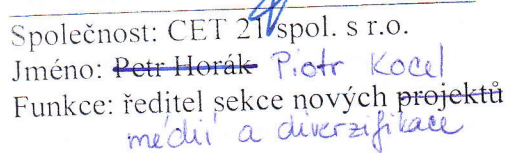 Společnost: CET 21 spol. s r.o.
Jméno: Petr Horák Piotr Kocel
Funkce: ředitel sekce nových projektů
médií a diverzifikace